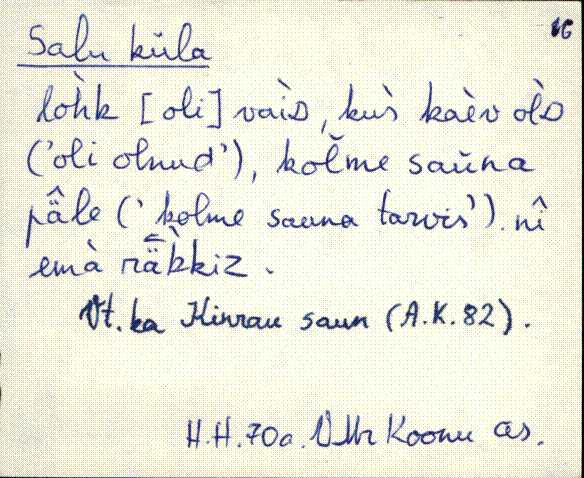 16
Salu küla
lòhk [oli] vàis, kus̀ kaèv òl̀s
('oli olnud'), kol̆me saŭna
pä̂le ('kolme sauna tarvis'). nî
emà rä̀kkiz.
Vt. ka Kinrau saun (A.K. 82).
H.H. 70a. Koonu as.